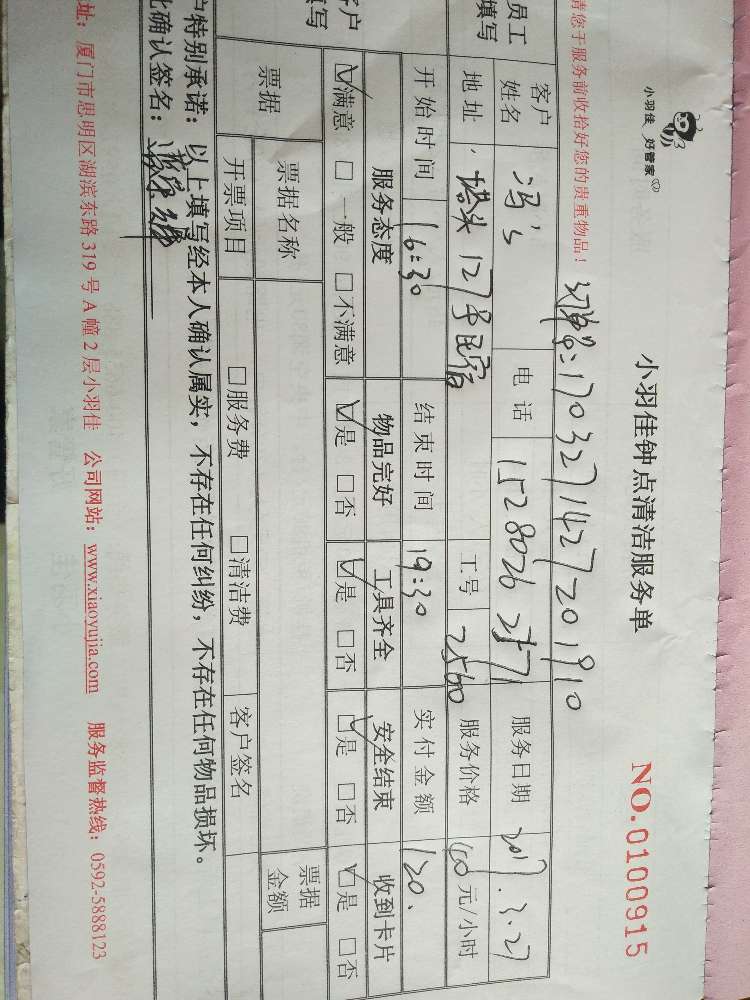 小羽佳 好管家
小羽佳钟点清洁服务单
NO.0100915
请您于服务前收拾好您的贵重物品！ 1703271427201910
员工填写 客户姓名 冯 电话 15280262571 服务日期 2017.3.27
地址 塔头127号民宿 工号 2560 服务价格 40元/小时
开始时间 16:30 结束时间 19:30 实付金额 120.
客户填写 服务态度 物品完好 工具齐全 安全结束 收到卡片
☑满意 □一般 □不满意 ☑是 □否 ☑是 □否 ☑是 □否 ☑是 □否
票据 票据名称 票据金额
开票项目 □服务费 □清洁费 客户签名
户特别承诺：以上填写经本人确认属实，不存在任何纠纷，不存在任何物品损坏。
此确认签名：
址：厦门市思明区湖滨东路319号A幢2层小羽佳 公司网站：www.xiaoyujia.com 服务监督热线：0592-5888123